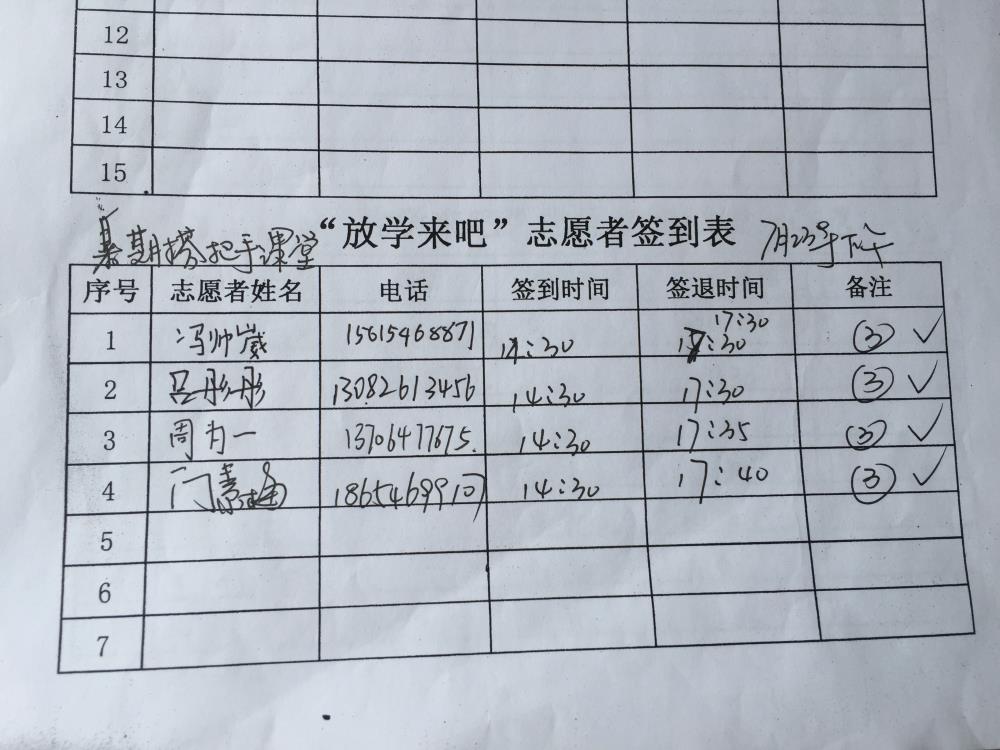 12
13
14
15
暑期搭把手课堂 “放学来吧”志愿者签到表 7月23号下午
序号 志愿者姓名 电话 签到时间 签退时间 备注
17:30
1 冯帅崴 15615468871 14:30 17:30 ③ ✓
2 吕彤彤 13082613456 14:30 17:30 ③ ✓
3 周为一 13706477675. 14:30 17:35 ③ ✓
4 门慧 18654699107 14:30 17:40 ③ ✓
5
6
7